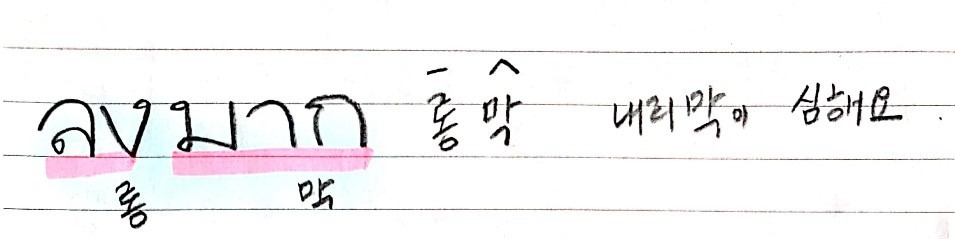 ลงมาก 롱 막 내리막이 심해요.
롱 막